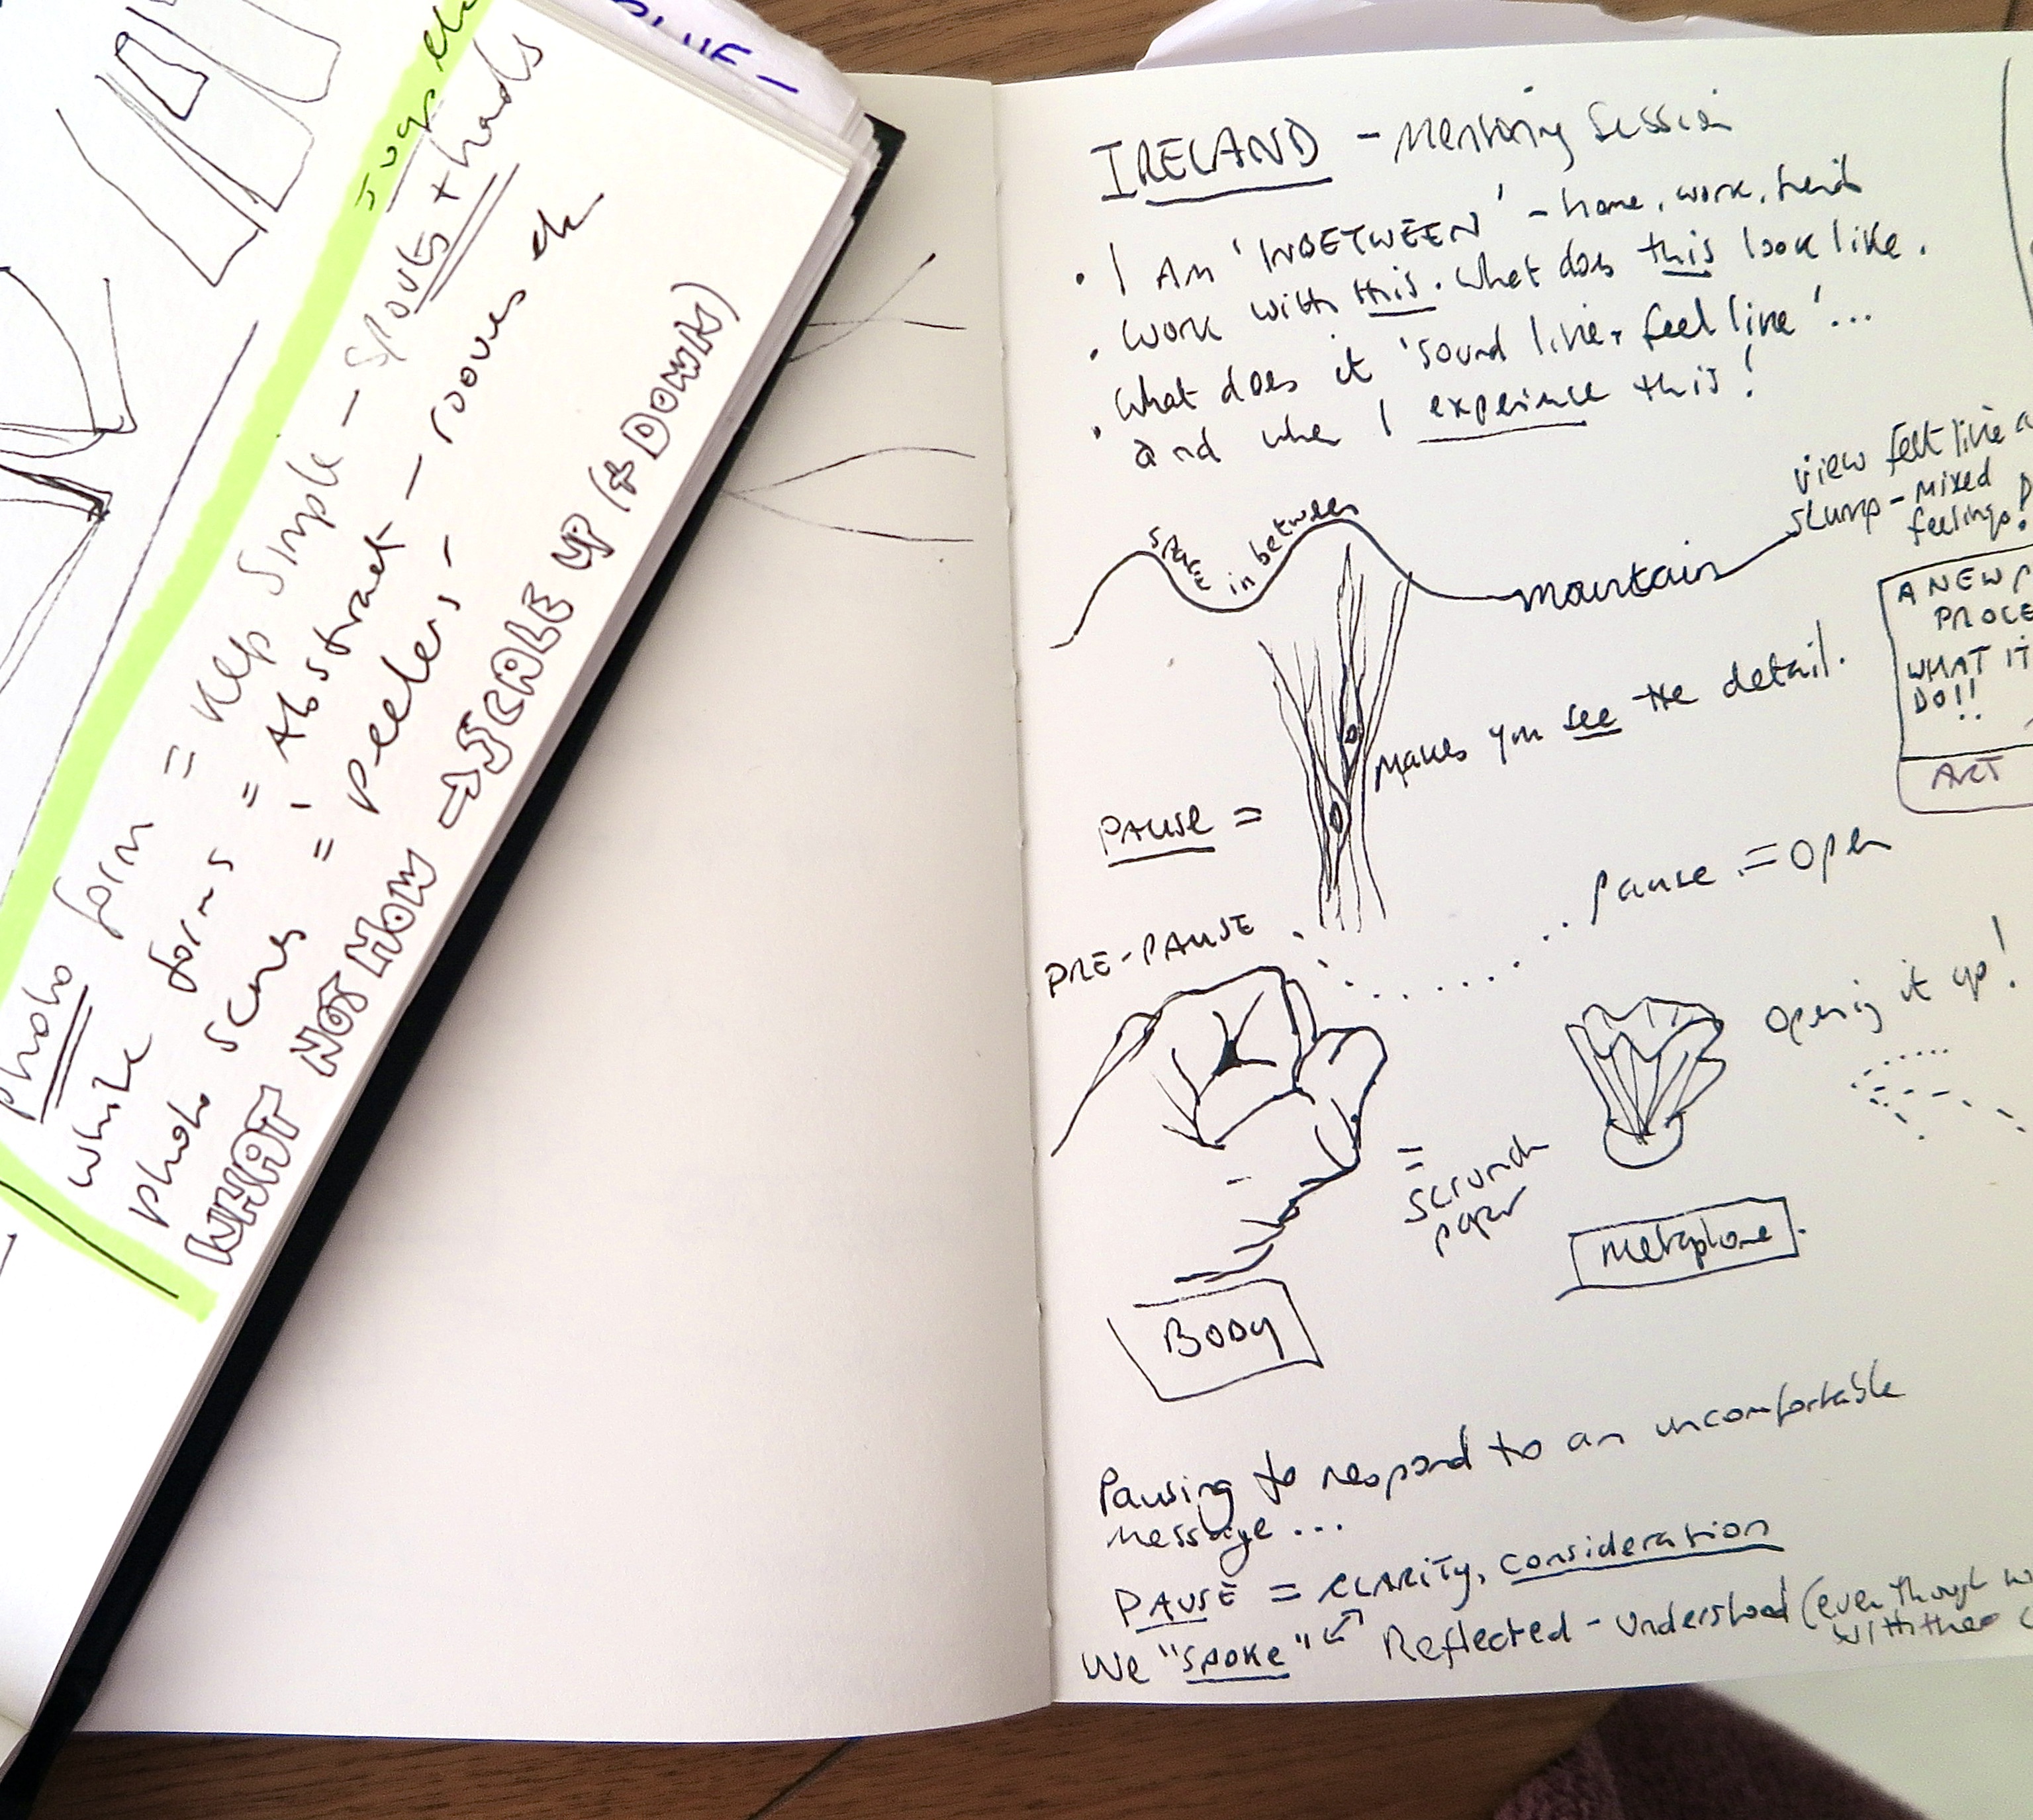 BLUE –
Jugs etc
Photo form = keep simple – spouts + hands
white forms = Abstract – rooves etc
photo scenes = 'peelers'
WHAT NOT HOW → SCALE UP (+ DOWN)
IRELAND – Mentoring Session
• I AM 'INBETWEEN' – home, work, friends
• Work with this. What does this look like.
• What does it 'sound like + feel like'...
and when I experience this!
space in between
mountain
view felt like a
slump – mixed
feelings!
A NEW
PROCE
WHAT IT
DO!!
ART
makes you see the detail.
PAUSE =
PRE-PAUSE
pause = open
opening it up!
= scrunch
paper
metaphore
BODY
Pausing to respond to an uncomfortable
message...
PAUSE = CLARITY, consideration
We "SPOKE" Reflected – understood (even though